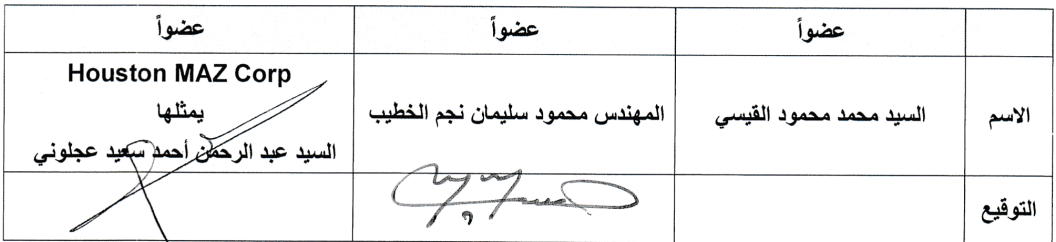 عضواً
عضواً
عضواً
الاسم
السيد محمد محمود القيسي
المهندس محمود سليمان نجم الخطيب
Houston MAZ Corp
يمثلها
السيد عبد الرحمن أحمد سعيد عجلوني
التوقيع